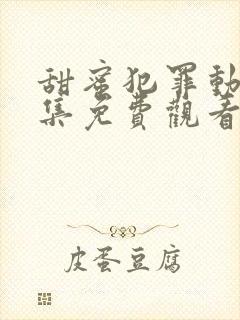 甜蜜犯罪動
集免費觀看
皮蛋豆腐